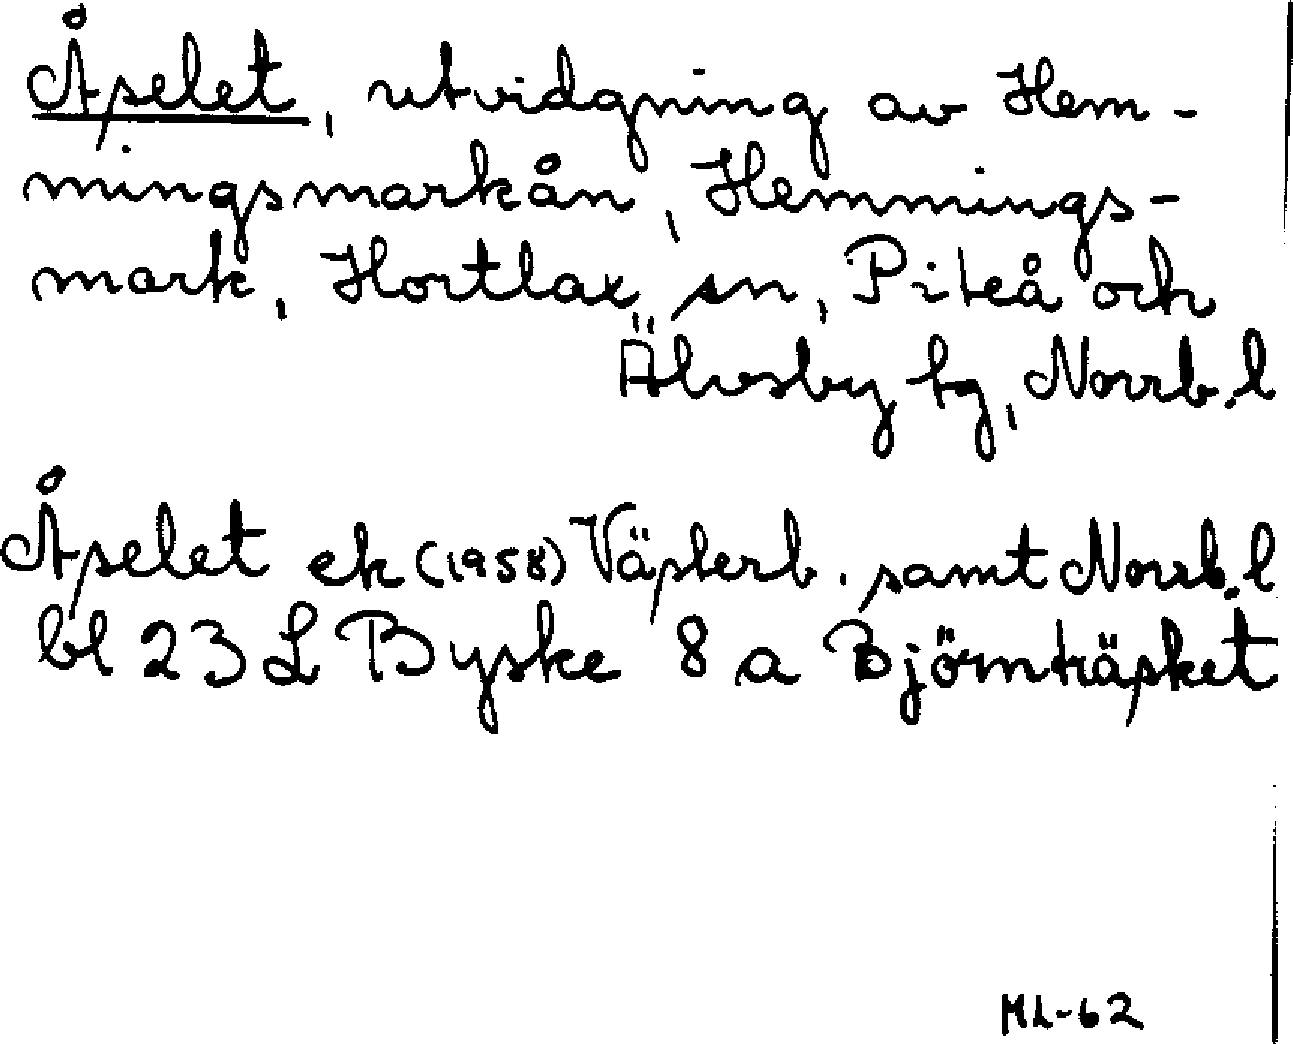 Åselet, utvidgning av Hem-
mingsmarkån, Hemmings-
mark, Hortlax sn, Piteå och
Älvsby tg, Norrb. l
Åselet ek (1958) Västerb. samt Norrb. l
bl 23 L Byske 8 a Björnträsket
ML-62